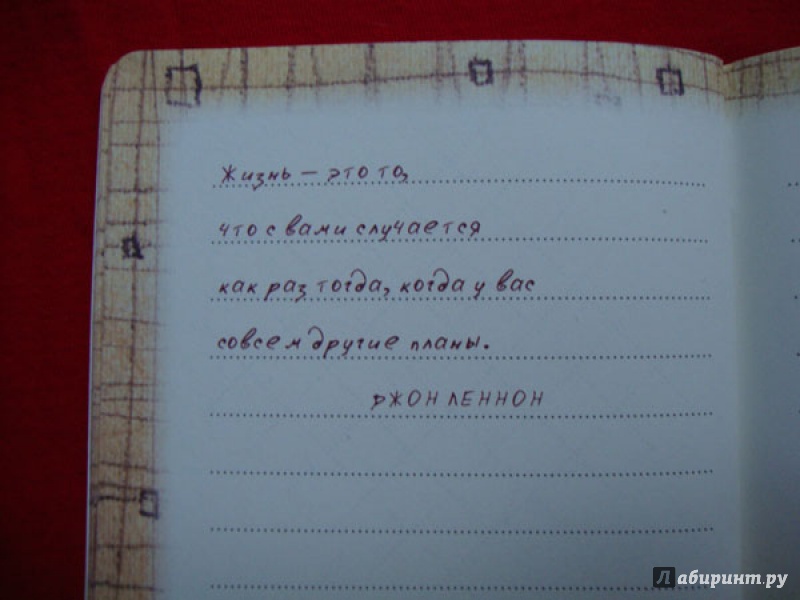 Жизнь — это то,
что с вами случается
как раз тогда, когда у вас
совсем другие планы.
ДЖОН ЛЕННОН
Лабиринт.ру